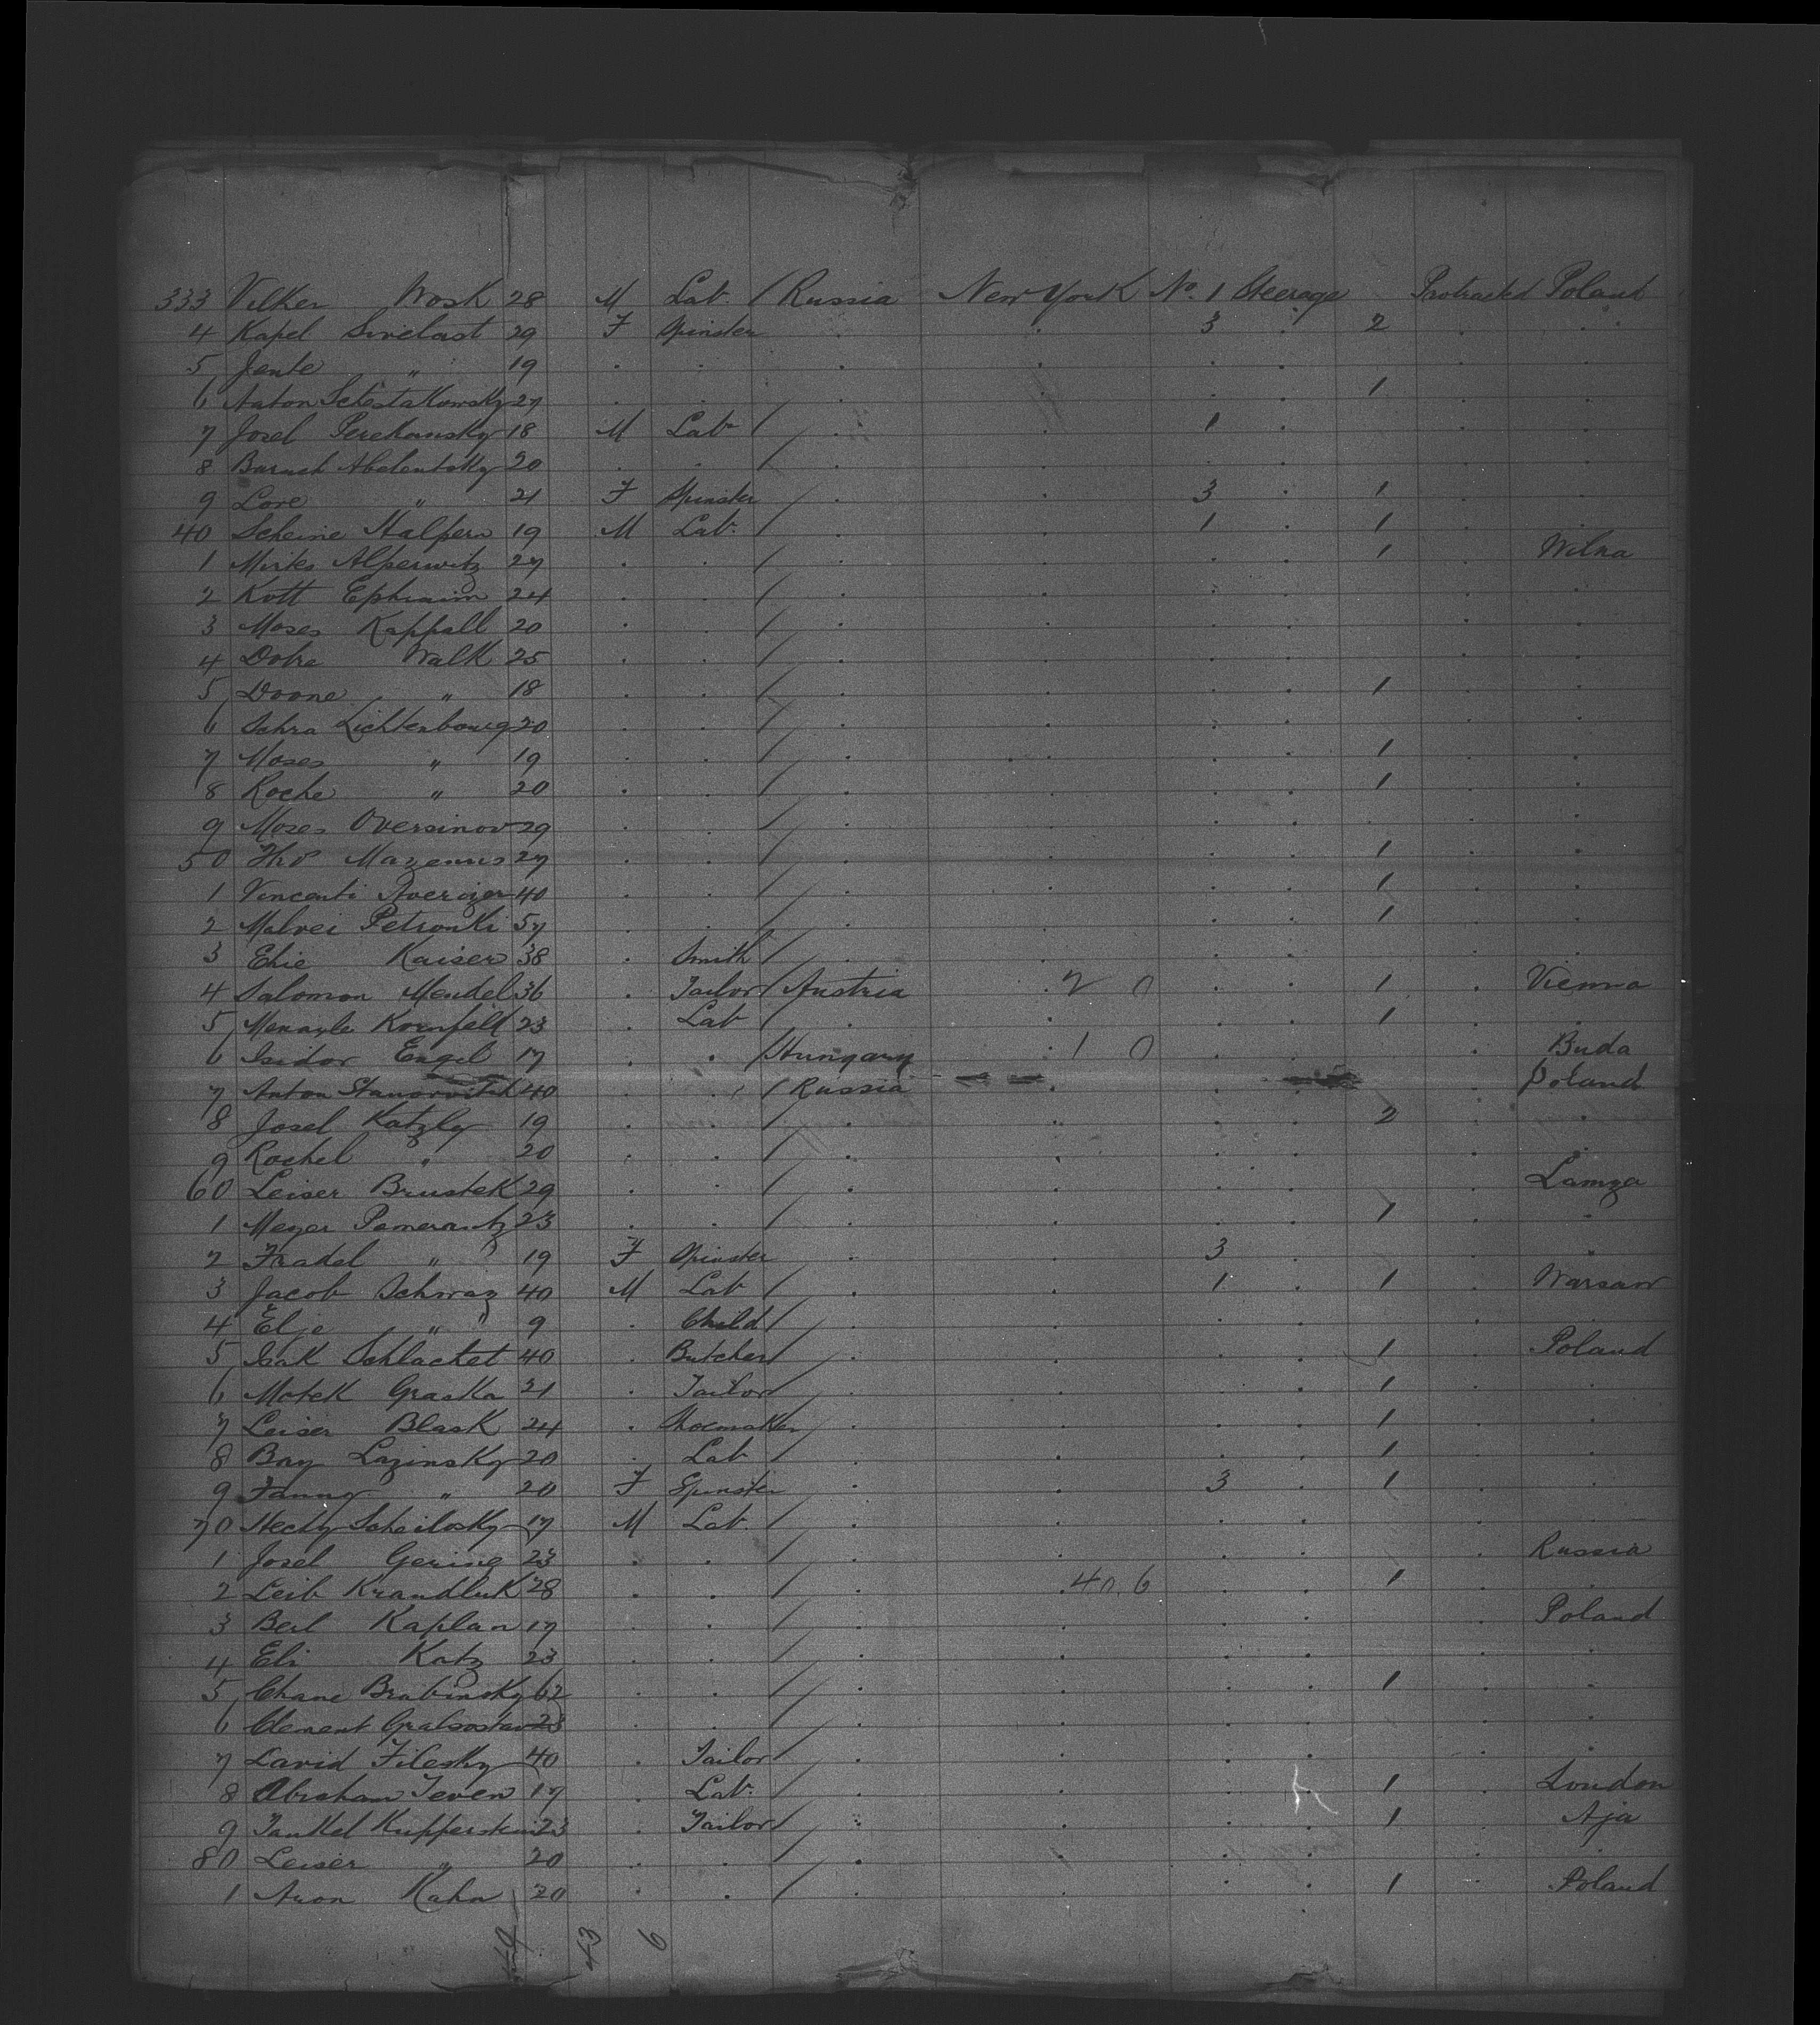 333 Vilker Wosk 28 M Lab. / Russia New York No. 1 Steerage Protracted Poland
4 Kapel Swelast 29 F Spinster . . 3 . 2 . .
5 Jente " 19 . . . . . . . .
6 Anton Schestakowsky 27 . . . . . . 1 . .
7 Josel Perekansky 18 M Lab / . . 1 . . .
8 Baruch Abelentsky 20 . . / . . . . . .
9 Lore " 21 F Spinster / . . 3 . 1 . .
40 Scheine Halpern 19 M Lab. / . . 1 . 1 . .
1 Mirkes Alperwitz 27 . . / . . . . 1 . Wilna
2 Kott Ephraim 24 . . / . . . . . .
3 Moses Kappell 20 . . / . . . . . .
4 Dobre Walk 25 . . / . . . . . .
5 Doone " 18 . . / . . . . 1 . .
6 Schra Lichtenbourg 20 . . / . . . . . .
7 Moses " 19 . . / . . . . 1 . .
8 Roche " 20 . . / . . . . 1 . .
9 Moses Oversinov 29 . . / . . . . . .
50 Tho Mazemis 27 . . / . . . . 1 . .
1 Vincenti 40 . . / . . . . 1 . .
2 Malvei Petronki 57 . . / . . . . 1 . .
3 Ehie Kaiser 38 . Smith / . . . . . .
4 Salomon Mendel 36 . Tailor / Austria . 2 0 . . 1 . Vienna
5 Menayle Kornfeld 23 . Lab / . . . . 1 . .
6 Isidor Engel 17 . . / Hungary . 1 0 . . . Buda
7 Anton Stanorvitch 40 . . / Russia . . . . Poland
8 Josel Katzley 19 . . / . . . . 2 . .
9 Rachel " 20 . . / . . . . . .
60 Leiser Brustek 29 . . / . . . . . Lamza
1 Meyer Pomerantz 23 . . / . . . . 1 . .
2 Fradel " 19 F Spinster . . 3 . . .
3 Jacob Schwaz 40 M Lab / . . 1 . 1 . Warsaw
4 Elje " 9 . Child / . . . . . .
5 Isak Schlachet 40 . Butcher / . . . . 1 . Poland
6 Motek Graska 21 . Tailor / . . . . 1 . .
7 Leiser Blask 24 . Shoemaker / . . . . 1 . .
8 Bay Lazinsky 20 . Lab / . . . . 1 . .
9 Fanny " 20 F Spinster . . 3 . 1 . .
70 Hecky Scheilosky 17 M Lab. / . . . . . .
1 Josel Gering 23 . . / . . . . . Russia
2 Leib Krandluk 28 . . / . 40.6 . . 1 . .
3 Berl Kaplan 17 . . / . . . . . Poland
4 Eli Katz 23 . . / . . . . . .
5 Chane Brabinsky 62 . . / . . . . 1 . .
6 Clement 28 . . / . . . . . .
7 David Filesky 40 . Tailor / . . . . . .
8 Abraham Teven 17 . Lab. / . . . . 1 . London
9 Jankel Kupperstein 23 . Tailor / . . . . 1 . Aja
80 Leiser " 20 . . / . . . . . .
1 Aron Kahn 20 . . / . . . . 1 . Poland
49 43 6